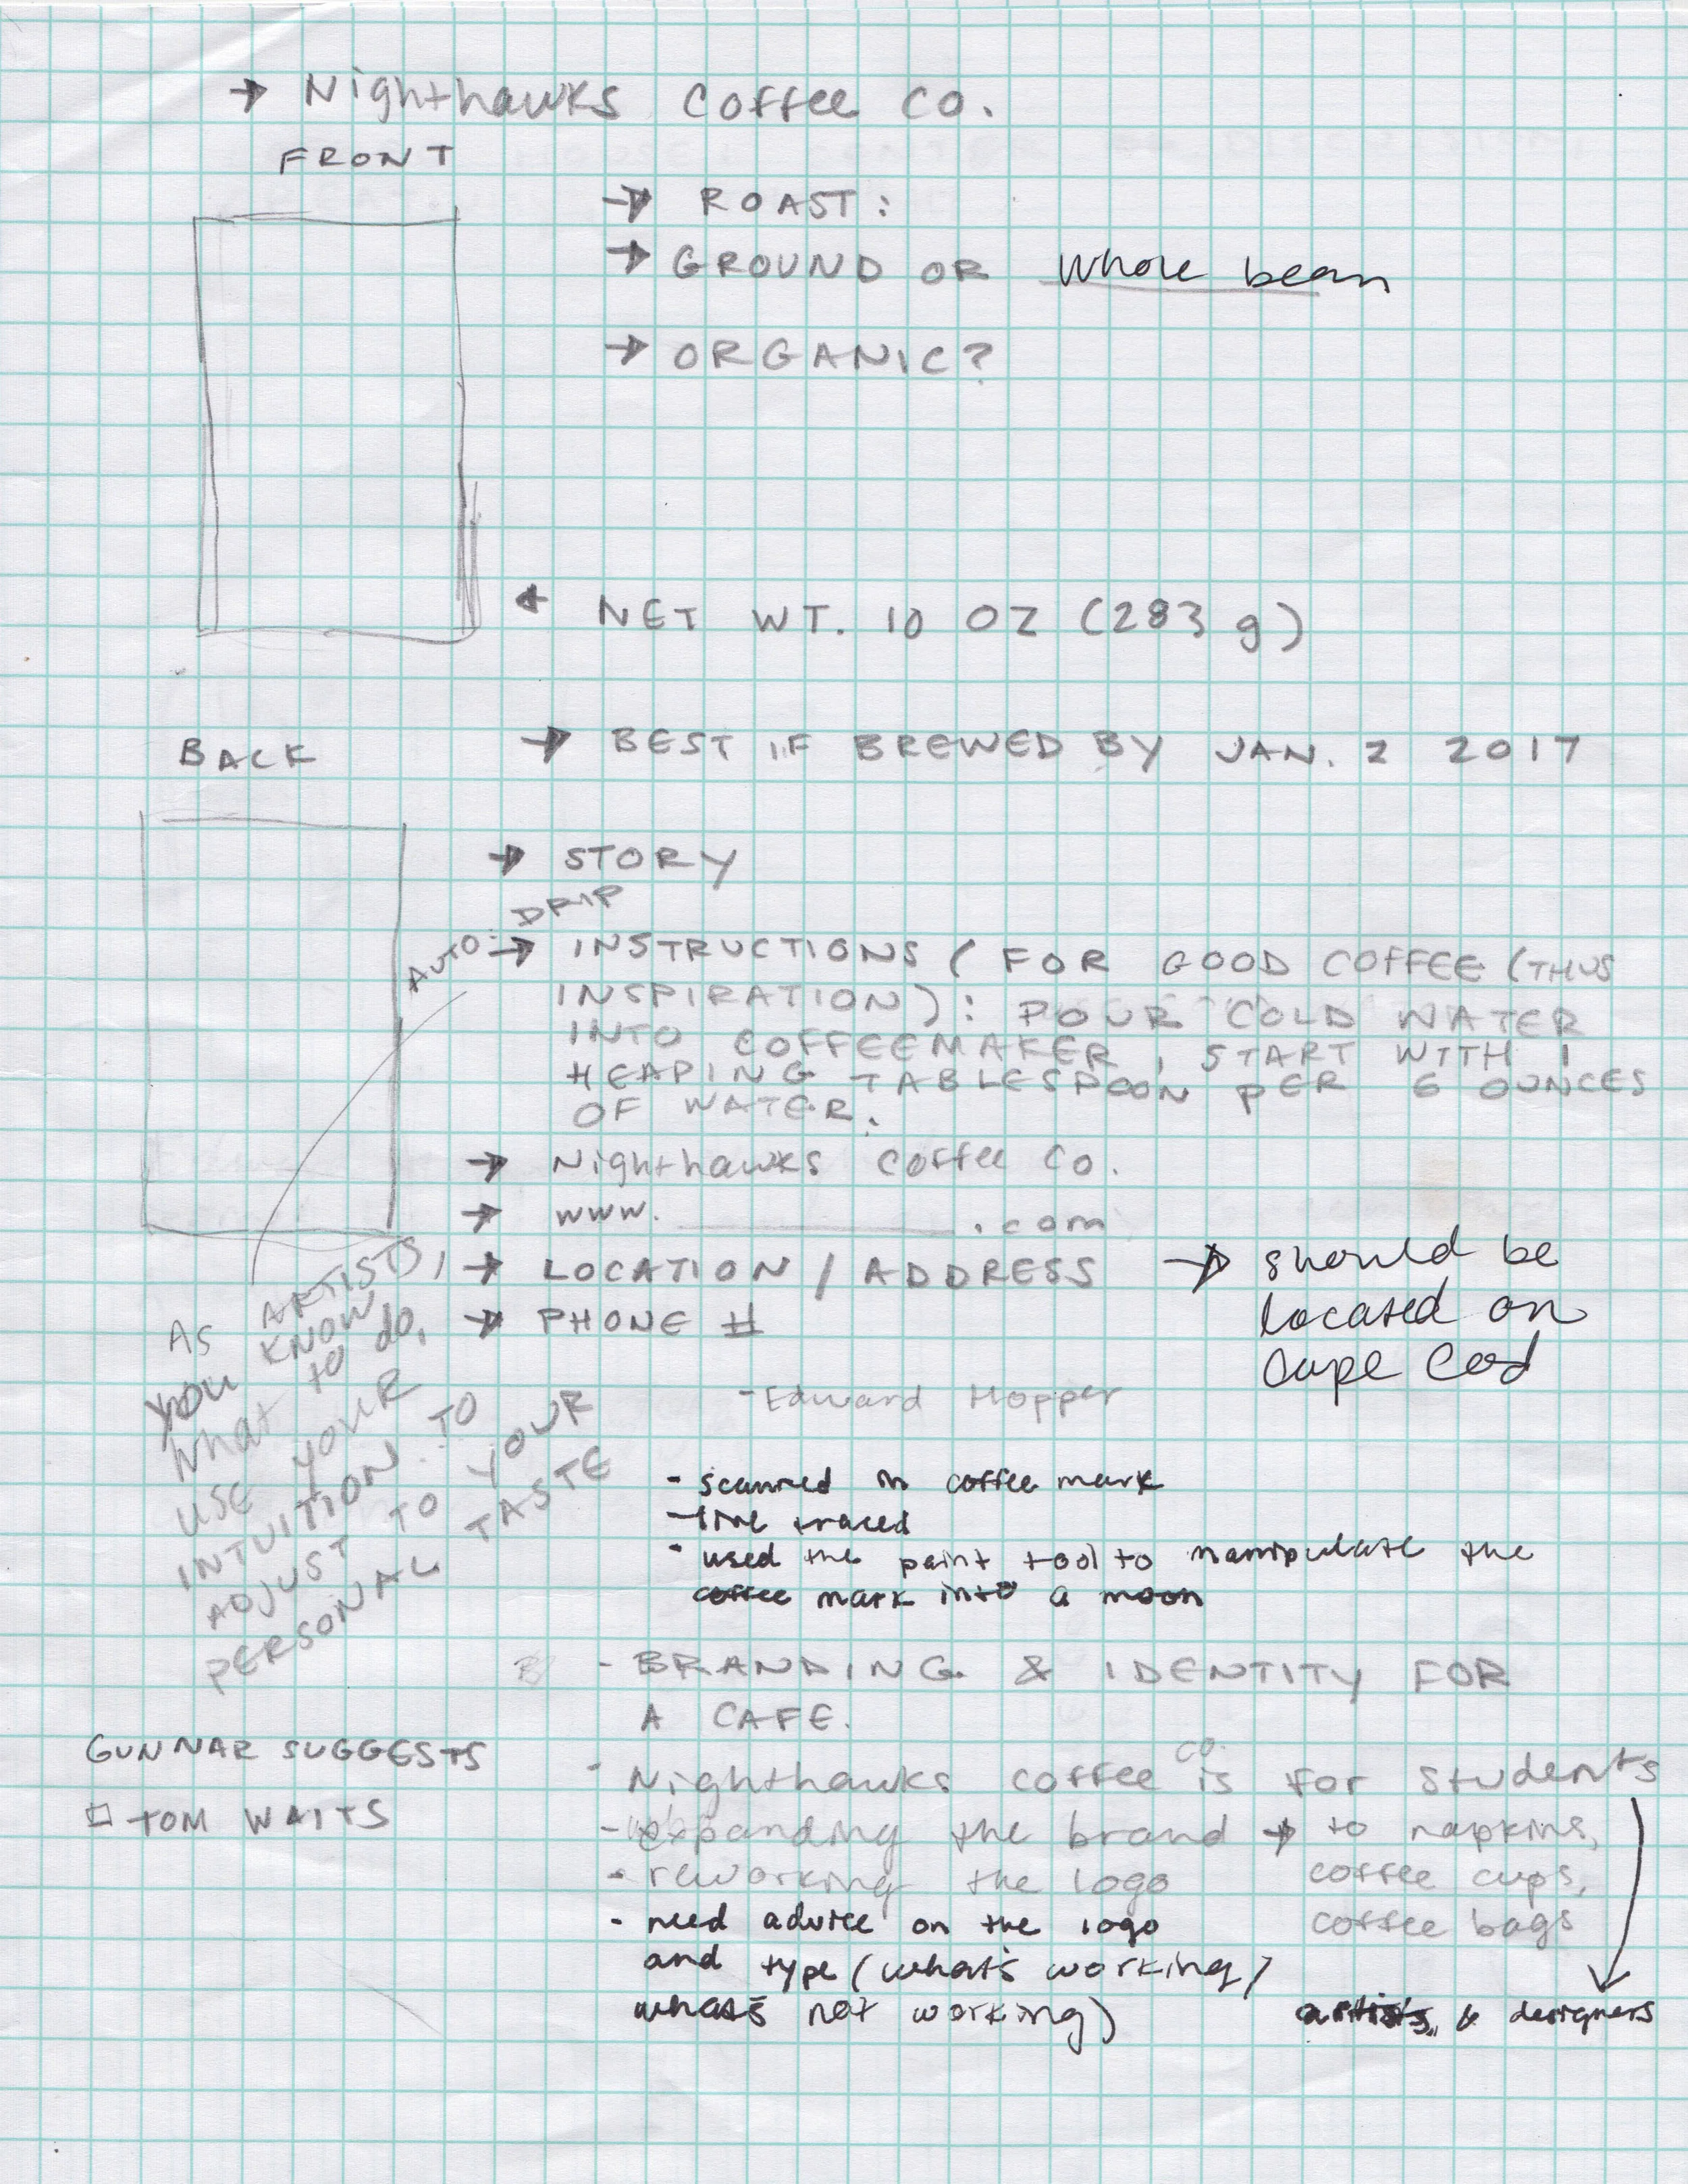 → Nighthawks Coffee Co.
FRONT
→ ROAST:
→ GROUND OR whole bean
→ ORGANIC?
← NET WT. 10 OZ (283 g)
BACK
→ BEST IF BREWED BY JAN. 2 2017
→ STORY
AUTO: DRIP
→ INSTRUCTIONS (FOR GOOD COFFEE (THUS
INSPIRATION): POUR COLD WATER
INTO COFFEEMAKER, START WITH 1
HEAPING TABLESPOON PER 6 OUNCES
OF WATER.
→ Nighthawks Coffee Co.
→ www. ________ .com
→ LOCATION / ADDRESS → should be
located on
Cape Cod
→ PHONE #
As ARTISTS,
you KNOW
what to do,
USE YOUR
INTUITION TO
ADJUST TO YOUR
PERSONAL TASTE
- Edward Hopper
- scanned in coffee mark
- live traced
- used the paint tool to manipulate the
coffee mark into a moon
- BRANDING & IDENTITY FOR
A CAFE.
GUNNAR SUGGESTS
□ TOM WAITS
- Nighthawks coffee co. is for students
- expanding the brand → to napkins,
coffee cups,
coffee bags
- reworking the logo
- need advice on the logo
and type (what's working/
what's not working)
artists & designers